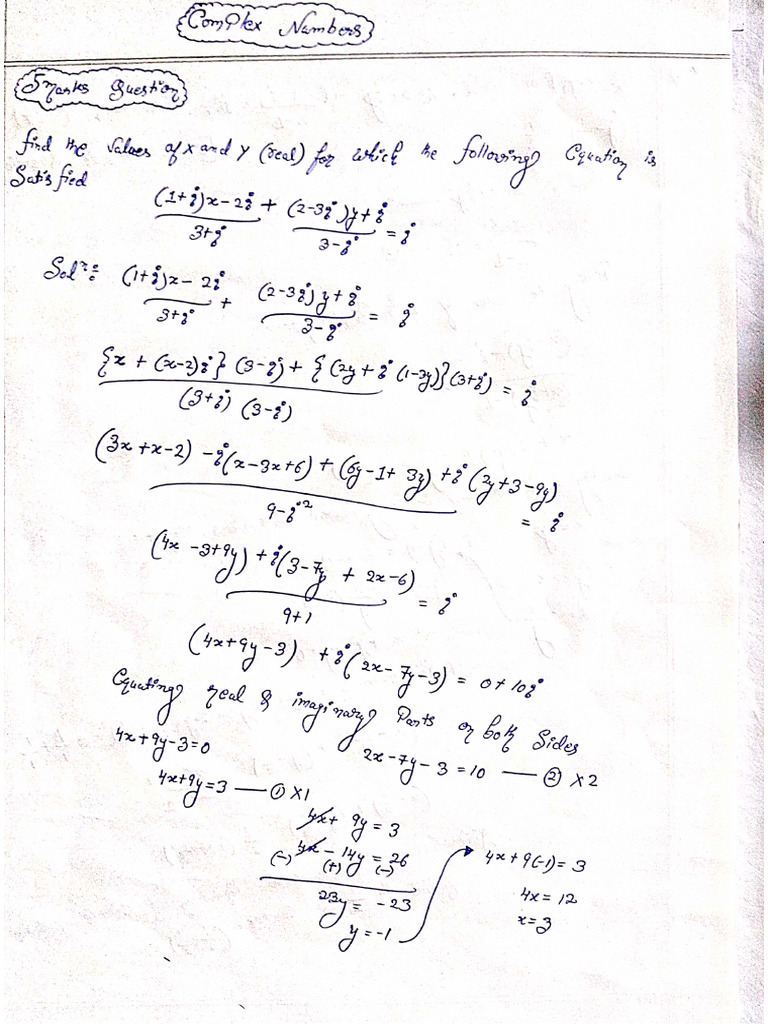 Complex Numbers
5marks Question
find the values of x and y (real) for which the following Equation is
Satisfied
(1+i)x-2i/3+i + (2-3i)y+i/3-i = i
Solⁿ:- (1+i)x-2i/3+i + (2-3i)y+i/3-i = i
{x + (x-2)i} (3-i) + {(2y + i (1-3y)}(3+i)/(3+i) (3-i) = i
(3x+x-2) -i(x-3x+6) + (6y-1+3y) +i(2y+3-9y)/9-i² = i
(4x -3+9y) +i(3-7y + 2x-6)/9+1 = i
(4x+9y-3) +i(2x-7y-3) = 0+10i
Equating real & imaginary Parts on both Sides
4x+9y-3=0 2x-7y-3=10 — ② X2
4x+9y=3 — ① X1
4x+ 9y = 3
4x - 14y = 26
(-) (+) (-)
23y = -23
y = -1
4x+9(-1)=3
4x=12
x=3